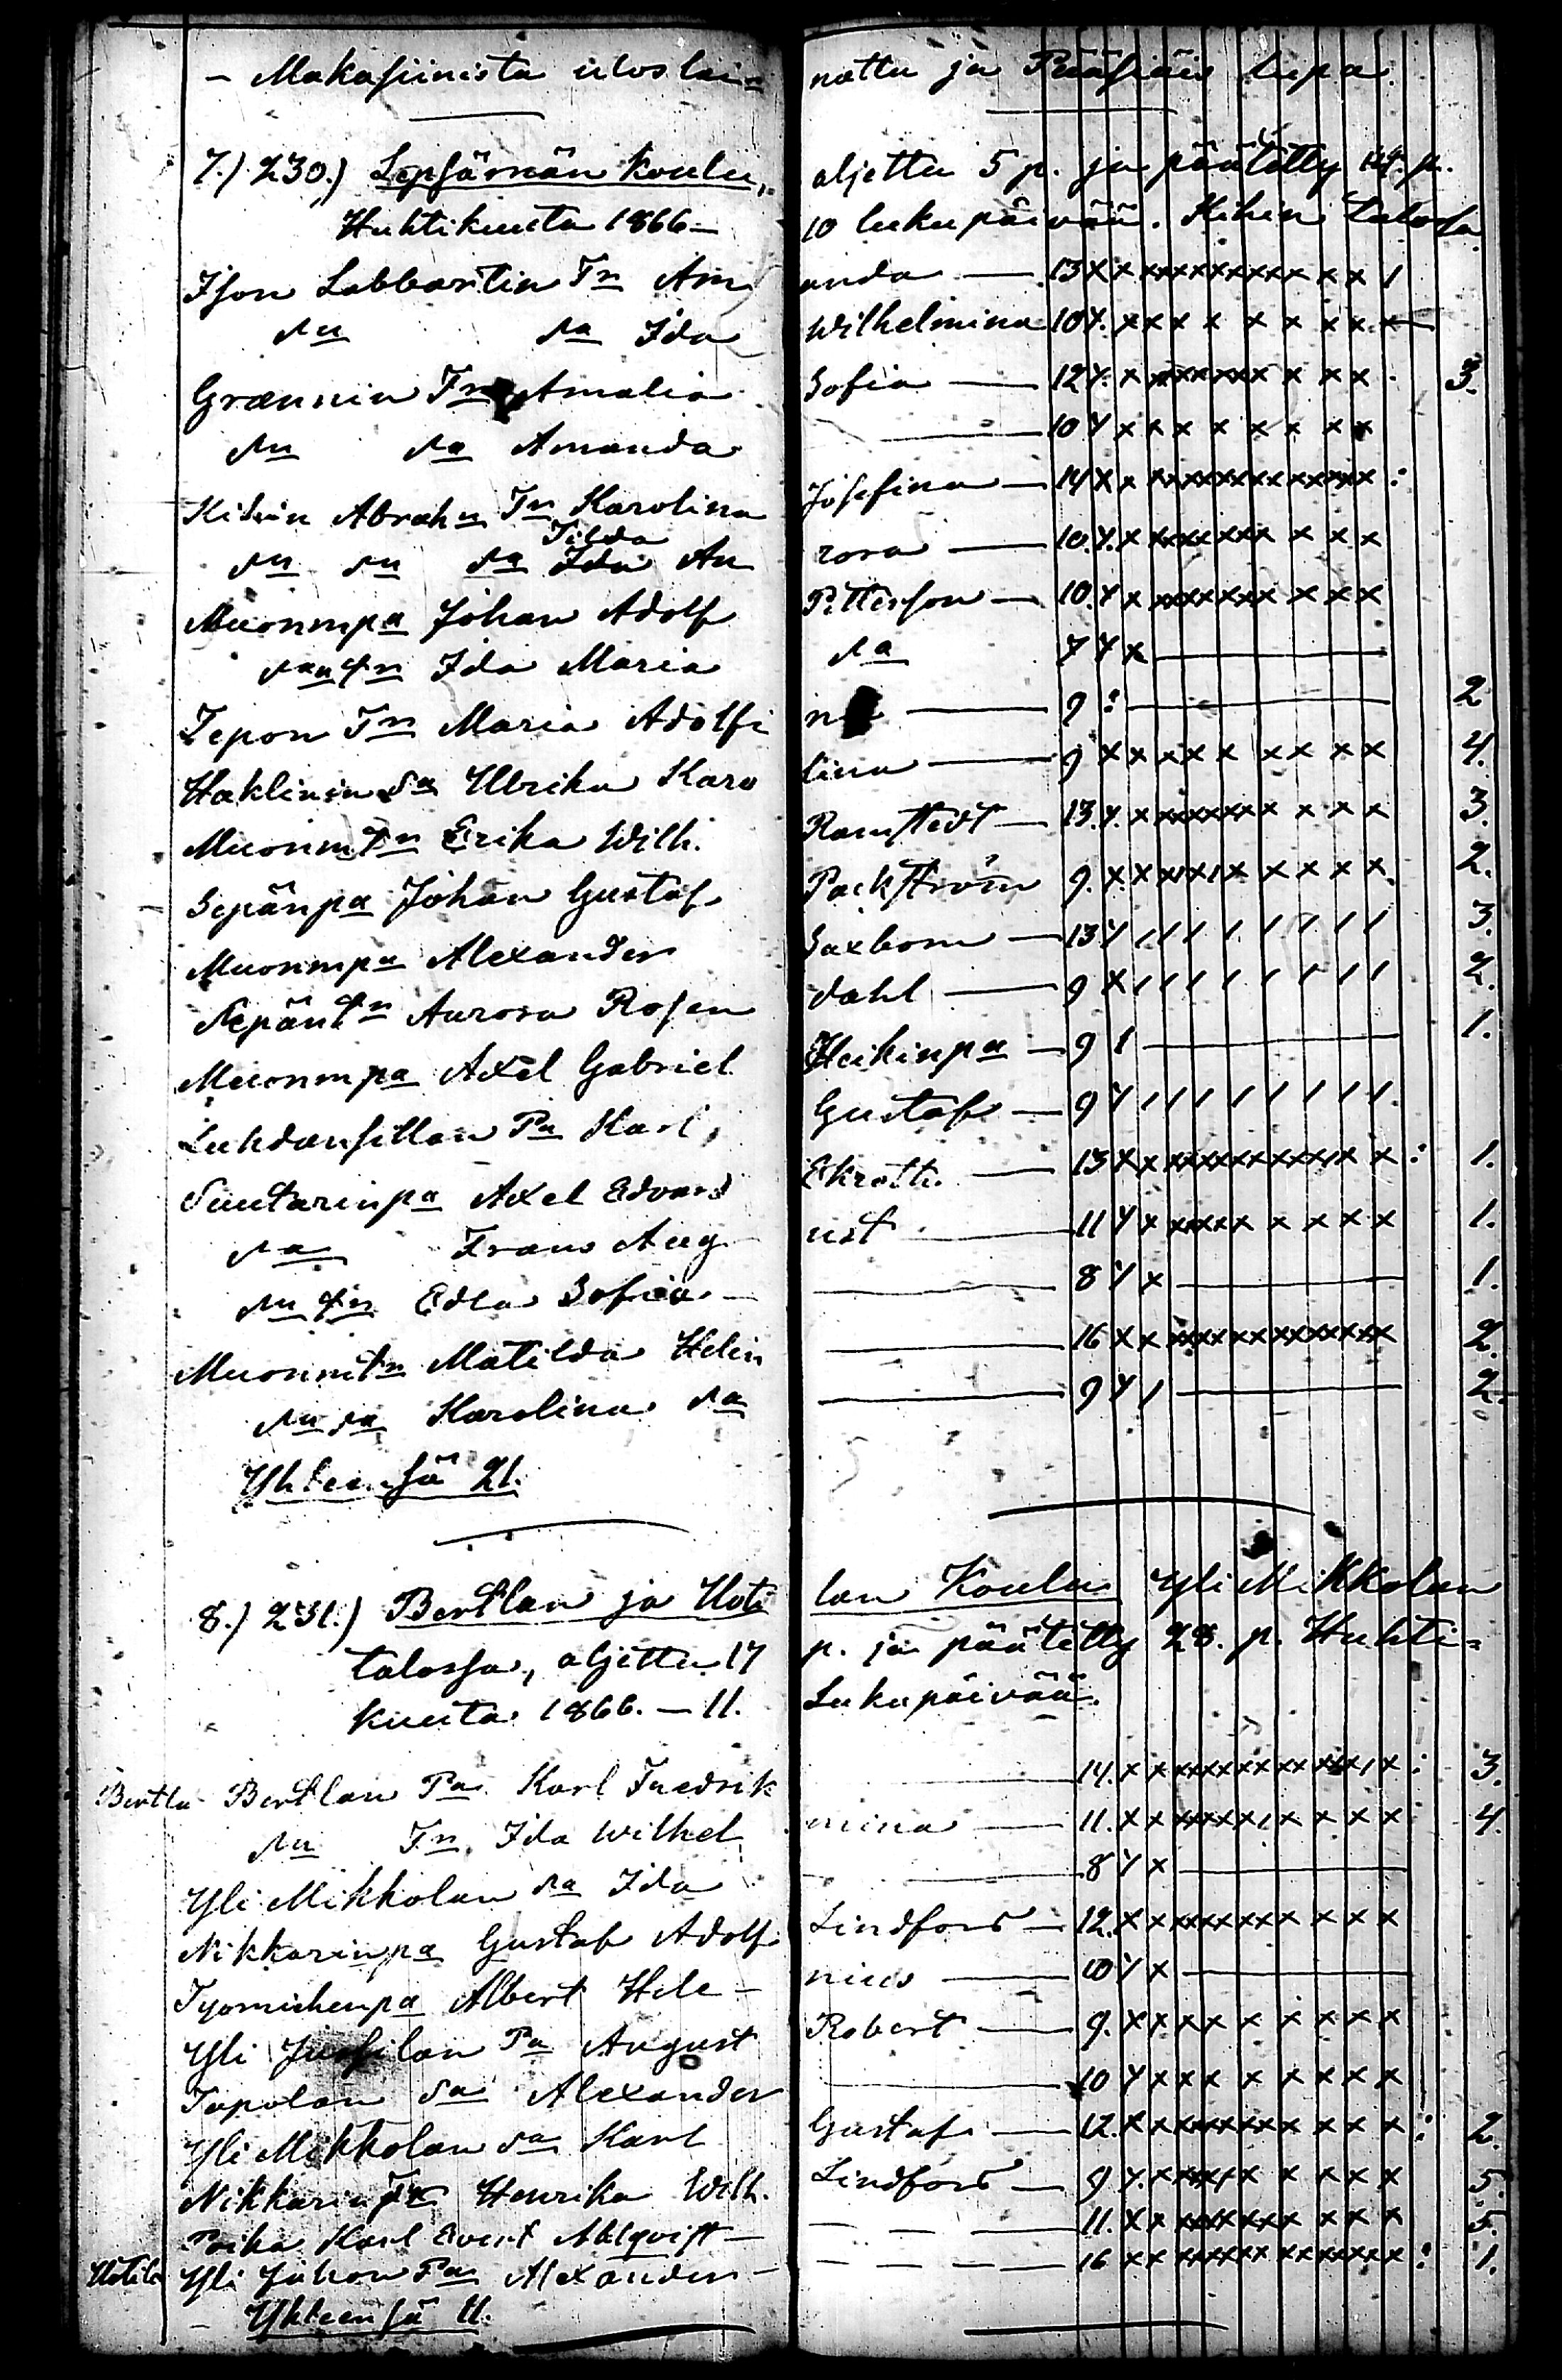 – Makasiinista ulos lai= nattu ja Pääsiäis lupa.
7.) 230.) Lepsämän Koulu, aljettu 5 p. ja päätetty 14. p.
Huhtikuuta 1866 – 10 lukupäivää. Kihin Talossa
Ison Labbartin Tr Am anda — 13 x x xxxxxxxxx x x x /
du da Ida Wilhelmina 10 x x x x x x x x x x
Grannin Tr Amalia Sofia — 12 x x xxxxxxx x x x 3.
du da Amanda — 10 x x x x x x x x x
Kihin Abrah n Tr Karolina Josefina — 14 x x xxxxxxxxxxxxx :
Tilda
du du da Ida Au rora — 10. x x xxxxxxx x x x
Muonmpa Johan Adolf Pettersson — 10. x x xxxxxxx x x x
Ida Maria da 7 x x —
Tepon Tr Maria Adolfi n — 9 : — 2
Haklinin da Ulrika Karo lina — 9 x x x x x x x x x 4.
Muonmtr Erika Wilh. Ramstedt — 13. x x xxxxxxx x x x 3.
Sepänpa Johan Gustaf Packström 9. x x x x / x x x x x 2.
Muonmpa Alexander Saxbom — 13 x / / / / / / / / 3.
Sepäntr Aurora Rosen dahl — 9 x / / / / / / / / 2.
Muonmpa Axel Gabriel Heikinpa — 9 / — 1.
Luhdansillan Pa Karl Gustaf — 9 x / / / / / / / /
Suutarinpa Axel Edvard Ekroth — 13 x x xxxxxxxxx x x : 1.
da Frans Aug ust — 11 x x xxxxx x x x x 1.
du tr Edla Sofia — 8 x x — 1.
Muonmtr Matilda Helin — 16 x x xxxxxxxxxxxxx 2.
du da Karolina da — 9 x / — 2.
Yhteensä 21.
8.) 231.) Berttlan ja Uoti lan Koulu Yli Mikkolan
talossa, aljettu 17 p. ja päätetty 28. p. Huhti=
kuuta 1866. – 11. Lukupäivää.
Berttla Berttlan Pa Karl Fredrik — 14. x x xxxxxxxxxxx / x : 3.
du Tr. Ida Wilhel mina — 11. x x xxxxx / x x x x 4.
Yli Mikkolan da Ida — 8 x x —
Nikkarinpa Gustaf Adolf Lindfors — 12. x x xxxxxxx x x x
Tyomiehenpa Albert Hele– nius — 10 x x —
Yli Jussilan Pa August Robert — 9. x x x x x x x x x
Tapolan da Alexander — 10 x x x x x x x x x
Yli Mikkolan da Karl Gustaf — 12. x x xxxxxxx x x x : 2.
Nikkarin Tr Henrika Wilh. Lindfors — 9 x x xxxx x x x x x 5.
Poika Karl Evert Ahlqvist — 11. x x xxxxxxx x x x 5.
Uotila Yli Juhon Pa Alexander — 16 x x xxxxxx xxxxxxx : 1.
Yhteensä 11.